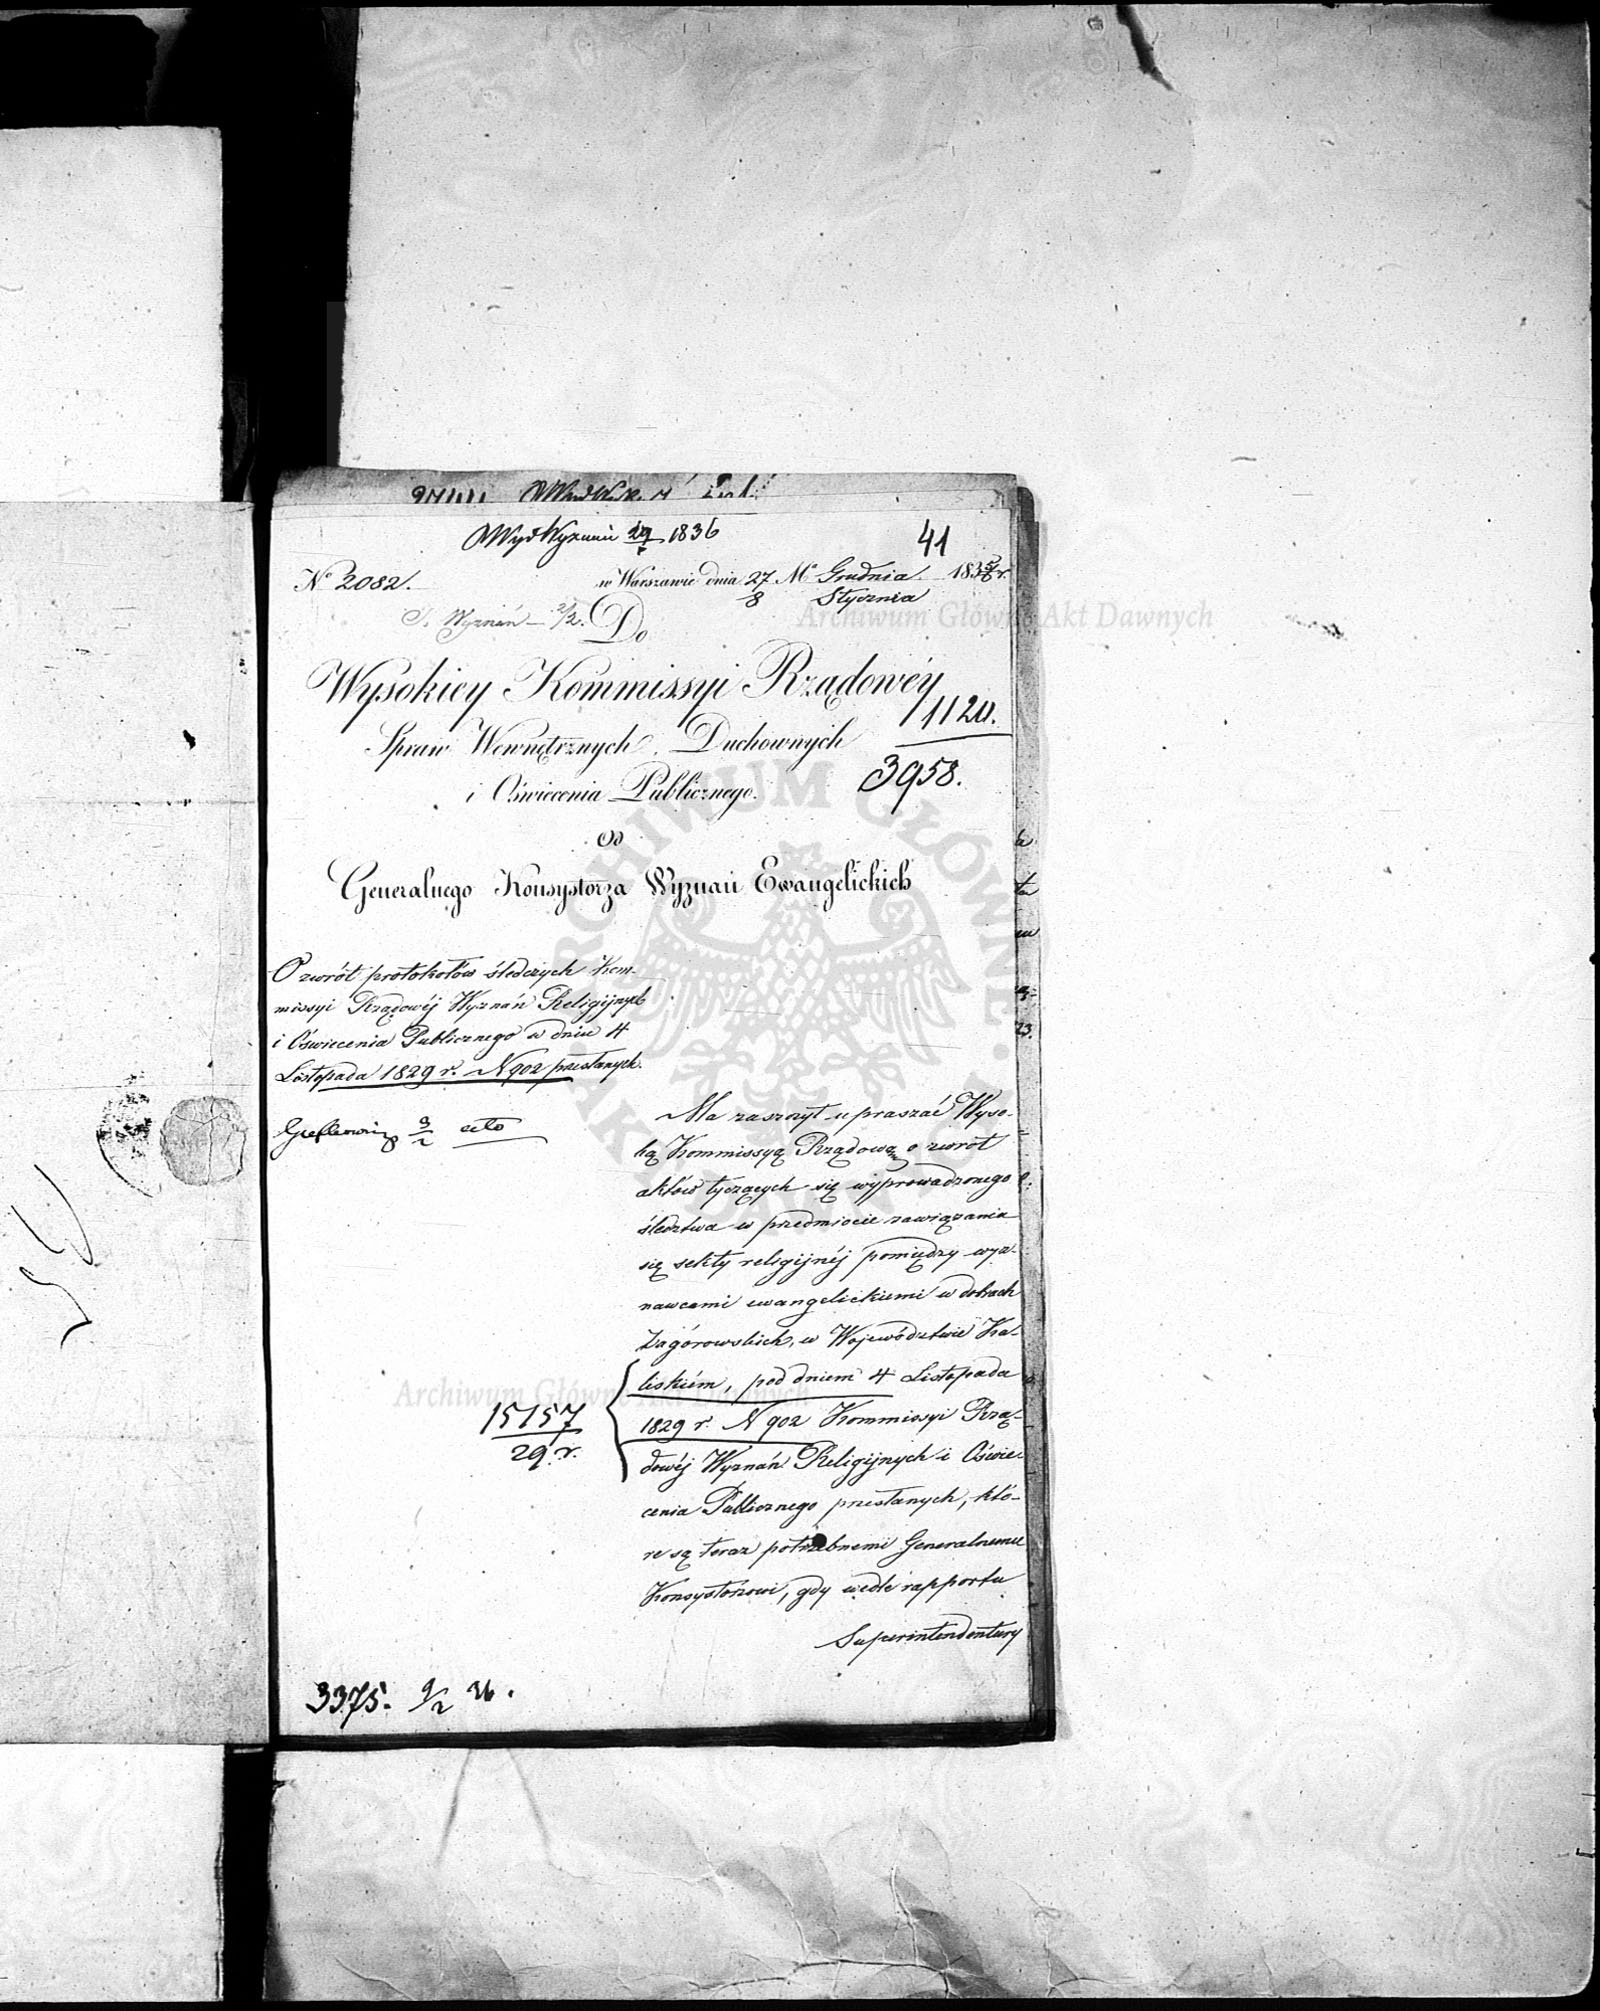 WydWyznań 29/1 1836
41
No 2082.
w Warszawie dnia 27/8 Mca Grudnia/Stycznia 1835/6 r.
S. Wyznań — 2/2.
Do
Wysokiey Kommissyi Rządowéy
1120.
Spraw Wewnętrznych, Duchownych
3958.
i Oświecenia Publicznego.
Od
Generalnego Konsystorza Wyznań Ewangelickich
O zwrót protokołów śledczych Kom-
missyi Rządowéj Wyznań Religijnych
i Oświecenia Publicznego w dniu 4
Listopada 1829 r. N 902 przesłanych.
3/2
Ma zaszczyt upraszać Wyso-
ką Kommissyą Rządową o zwrot
aktów tyczących się wyprowadzonego
śledztwa w przedmiocie zawiązania
się sekty religijnéj pomiędzy wyz-
nawcami ewangelickiemi w dobrach
Zagórowskich, w Województwie Ka-
liskiém, pod dniem 4 Listopada
1829 r. N 902 Kommissyi Rzą-
dowéj Wyznań Religijnych i Oświe-
cenia Publicznego przesłanych, któ-
re są teraz potrzebnemi Generalnemu
Konsystorzowi, gdy wedle rapportu
Superintendentury
15157
29 r.
3375. 9/2 36.
Archiwum Główne Akt Dawnych
Archiwum Główne Akt Dawnych
ARCHIWUM GŁÓWNE AKT DAWNYCH